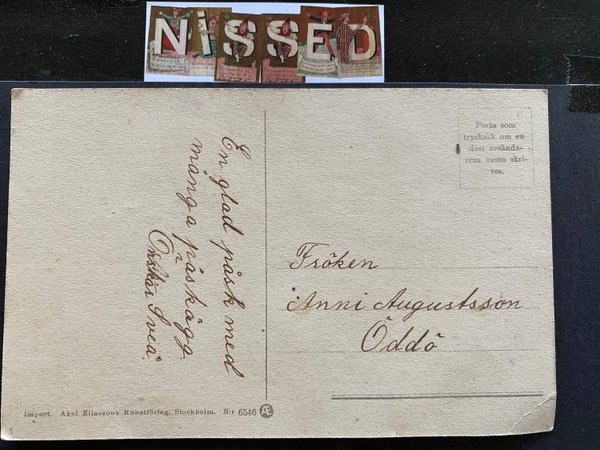 NISSED
En glad påsk med
många påskägg.
Önskar Svea.
Posta som
trycksak om en
dast avsända-
rens namn skri-
ves.
Fröken
Anni Augustsson
Öddö
Import. Axel Eliassons Konstförlag, Stockholm. N:r 6546 Æ